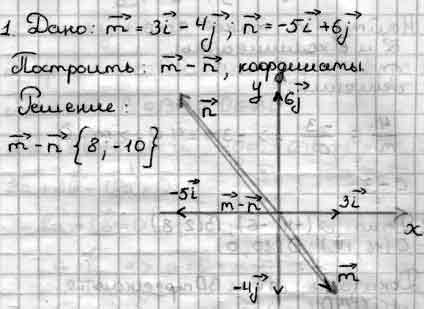 1. Дано: m⃗ = 3i⃗ - 4j⃗; n⃗ = -5i⃗ + 6j⃗
Построить: m⃗ - n⃗, координаты
Решение:
m⃗ - n⃗ {8; -10}
n⃗
y
6j⃗
-5i⃗
m⃗ - n⃗
3i⃗
x
-4j⃗
m⃗